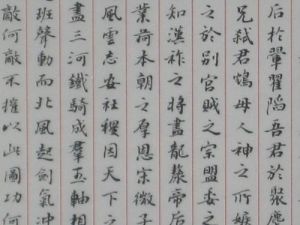 后於翬翟陷吾君於聚麀
兄弒君鴆母人神之所嫉
之於別宮賊之宗盟委之
知漢祚之將盡龍漦帝后
業荷本朝之厚恩宋微子
風雲志安社稷因天下之
盡三河鐵騎成羣玉軸相
班聲動而北風起劍氣沖
敵何敵不摧以此圖功何